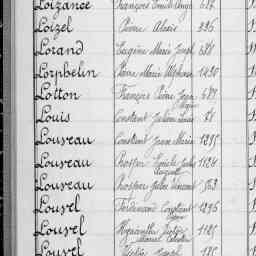 Loizance François Emile Ange 517
Loizel Pierre Alexis 396
Lorand Eugène Marie Joseph 481
Lorphelin Pierre Marie Alphonse 1430
Lotton François Pierre Jean 489
Louis Constant Julien 71
Louveau Constant Jean Marie 1295
Louveau Prosper Emile Jules 1124
Louveau Prosper Jules Vincent 563
Louvel Ferdinand Constant 1296
Louvel Hyacinthe 1125
Louvel Joseph 185